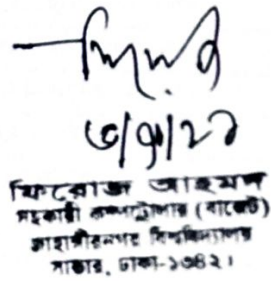 ফিরোজ
৩/৭/২১
ফিরোজ আহমদ
সহকারী কম্পট্রোলার (বাজেট)
জাহাঙ্গীরনগর বিশ্ববিদ্যালয়
সাভার, ঢাকা-১৩৪২।